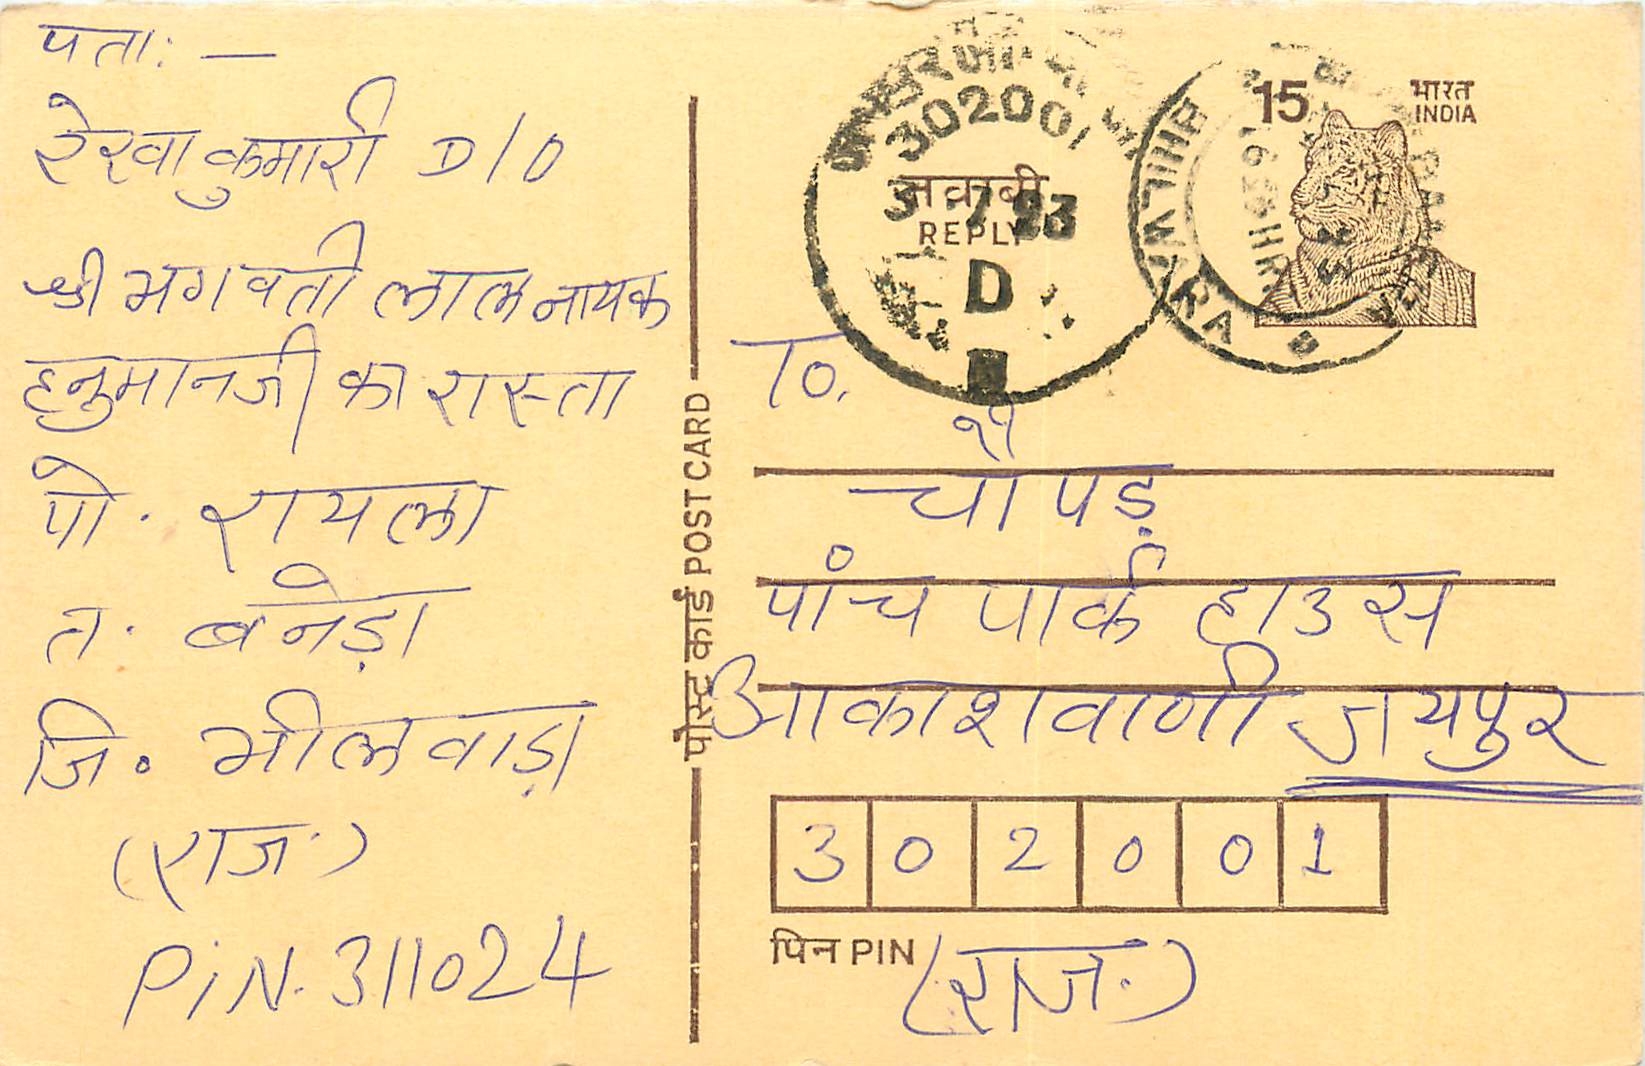 पता: —
रेखा कुमारी D/O
श्री भगवती लाल नायक
हनुमानजी का रास्ता
पो. रायला
त. बनेड़ा
जि. भीलवाड़ा
(राज.)
PiN. 311024
पोस्ट कार्ड POST CARD
302001
जवाबी
REPLY
D
BHILWARA
15
भारत
INDIA
To,
चौपड़
पांच पार्क हाउस
आकाशवाणी जयपुर
302001
पिन PIN
(राज.)